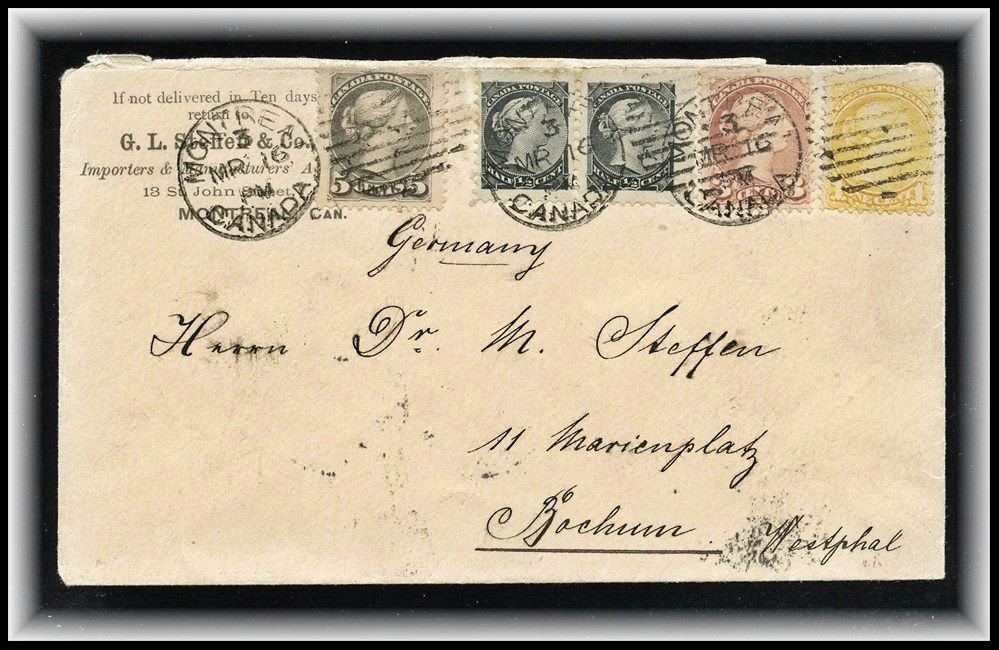 If not delivered in Ten days
return to
G. L. Steffen & Co.
Importers & Manufacturers' A
13 St John Street,
MONTREAL, CAN.
MONTREAL
3
MR 16
PM
CANADA
CANADA POSTAGE
5 CENTS 5
CANADA POSTAGE
HALF 1/2 CENT
CANADA POSTAGE
HALF 1/2 CENT
MR 16
CANADA
CANADA POSTAGE
3
MONTREAL
3
MR 16
PM
CANADA
CANADA POSTAGE
Germany
Herrn Dr. M. Steffen
11 Marienplatz
Bochum Westphal